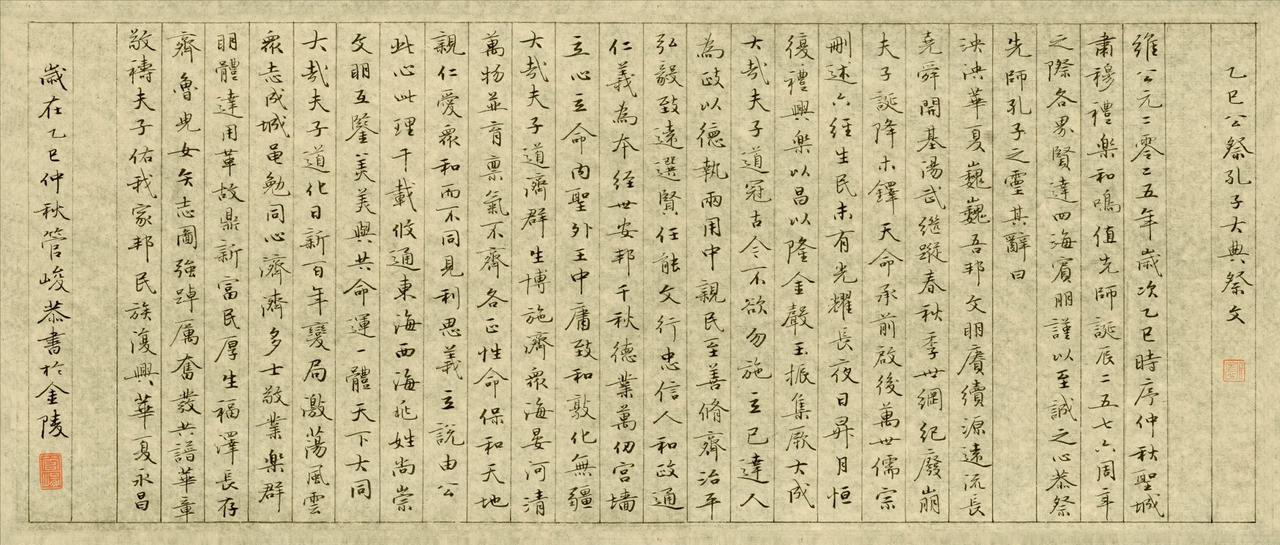 乙巳公祭孔子大典祭文
維公元二零二五年歲次乙巳時序仲秋聖城
肅穆禮樂和鳴值先師誕辰二五七六周年
之際各界賢達四海賓朋謹以至誠之心恭祭
先師孔子之靈其辭曰
泱泱華夏巍巍吾邦文明賡續源遠流長
堯舜開基湯武繼蹤春秋季世綱紀廢崩
夫子誕降木鐸天命承前啟後萬世儒宗
刪述六經生民未有光耀長夜日昇月恒
復禮興樂以昌以隆金聲玉振集厥大成
大哉夫子道冠古今不欲勿施立己達人
為政以德執兩用中親民至善脩齊治平
弘毅致遠選賢任能文行忠信人和政通
仁義為本經世安邦千秋德業萬仞宮墻
立心立命內聖外王中庸致和敦化無疆
大哉夫子道濟群生博施濟衆海晏河清
萬物並育禀氣不齊各正性命保和天地
親仁愛衆和而不同見利思義立説由公
此心此理千載攸通東海西海庶姓尚崇
文明互鑒美美與共命運一體天下大同
大哉夫子道化日新百年變局激蕩風雲
衆志成城黽勉同心濟濟多士敬業樂群
明體達用革故鼎新富民厚生福澤長存
齊魯兒女矢志圖強踔厲奮發共譜華章
敬禱夫子佑我家邦民族復興華夏永昌
歲在乙巳仲秋管峻恭書於金陵